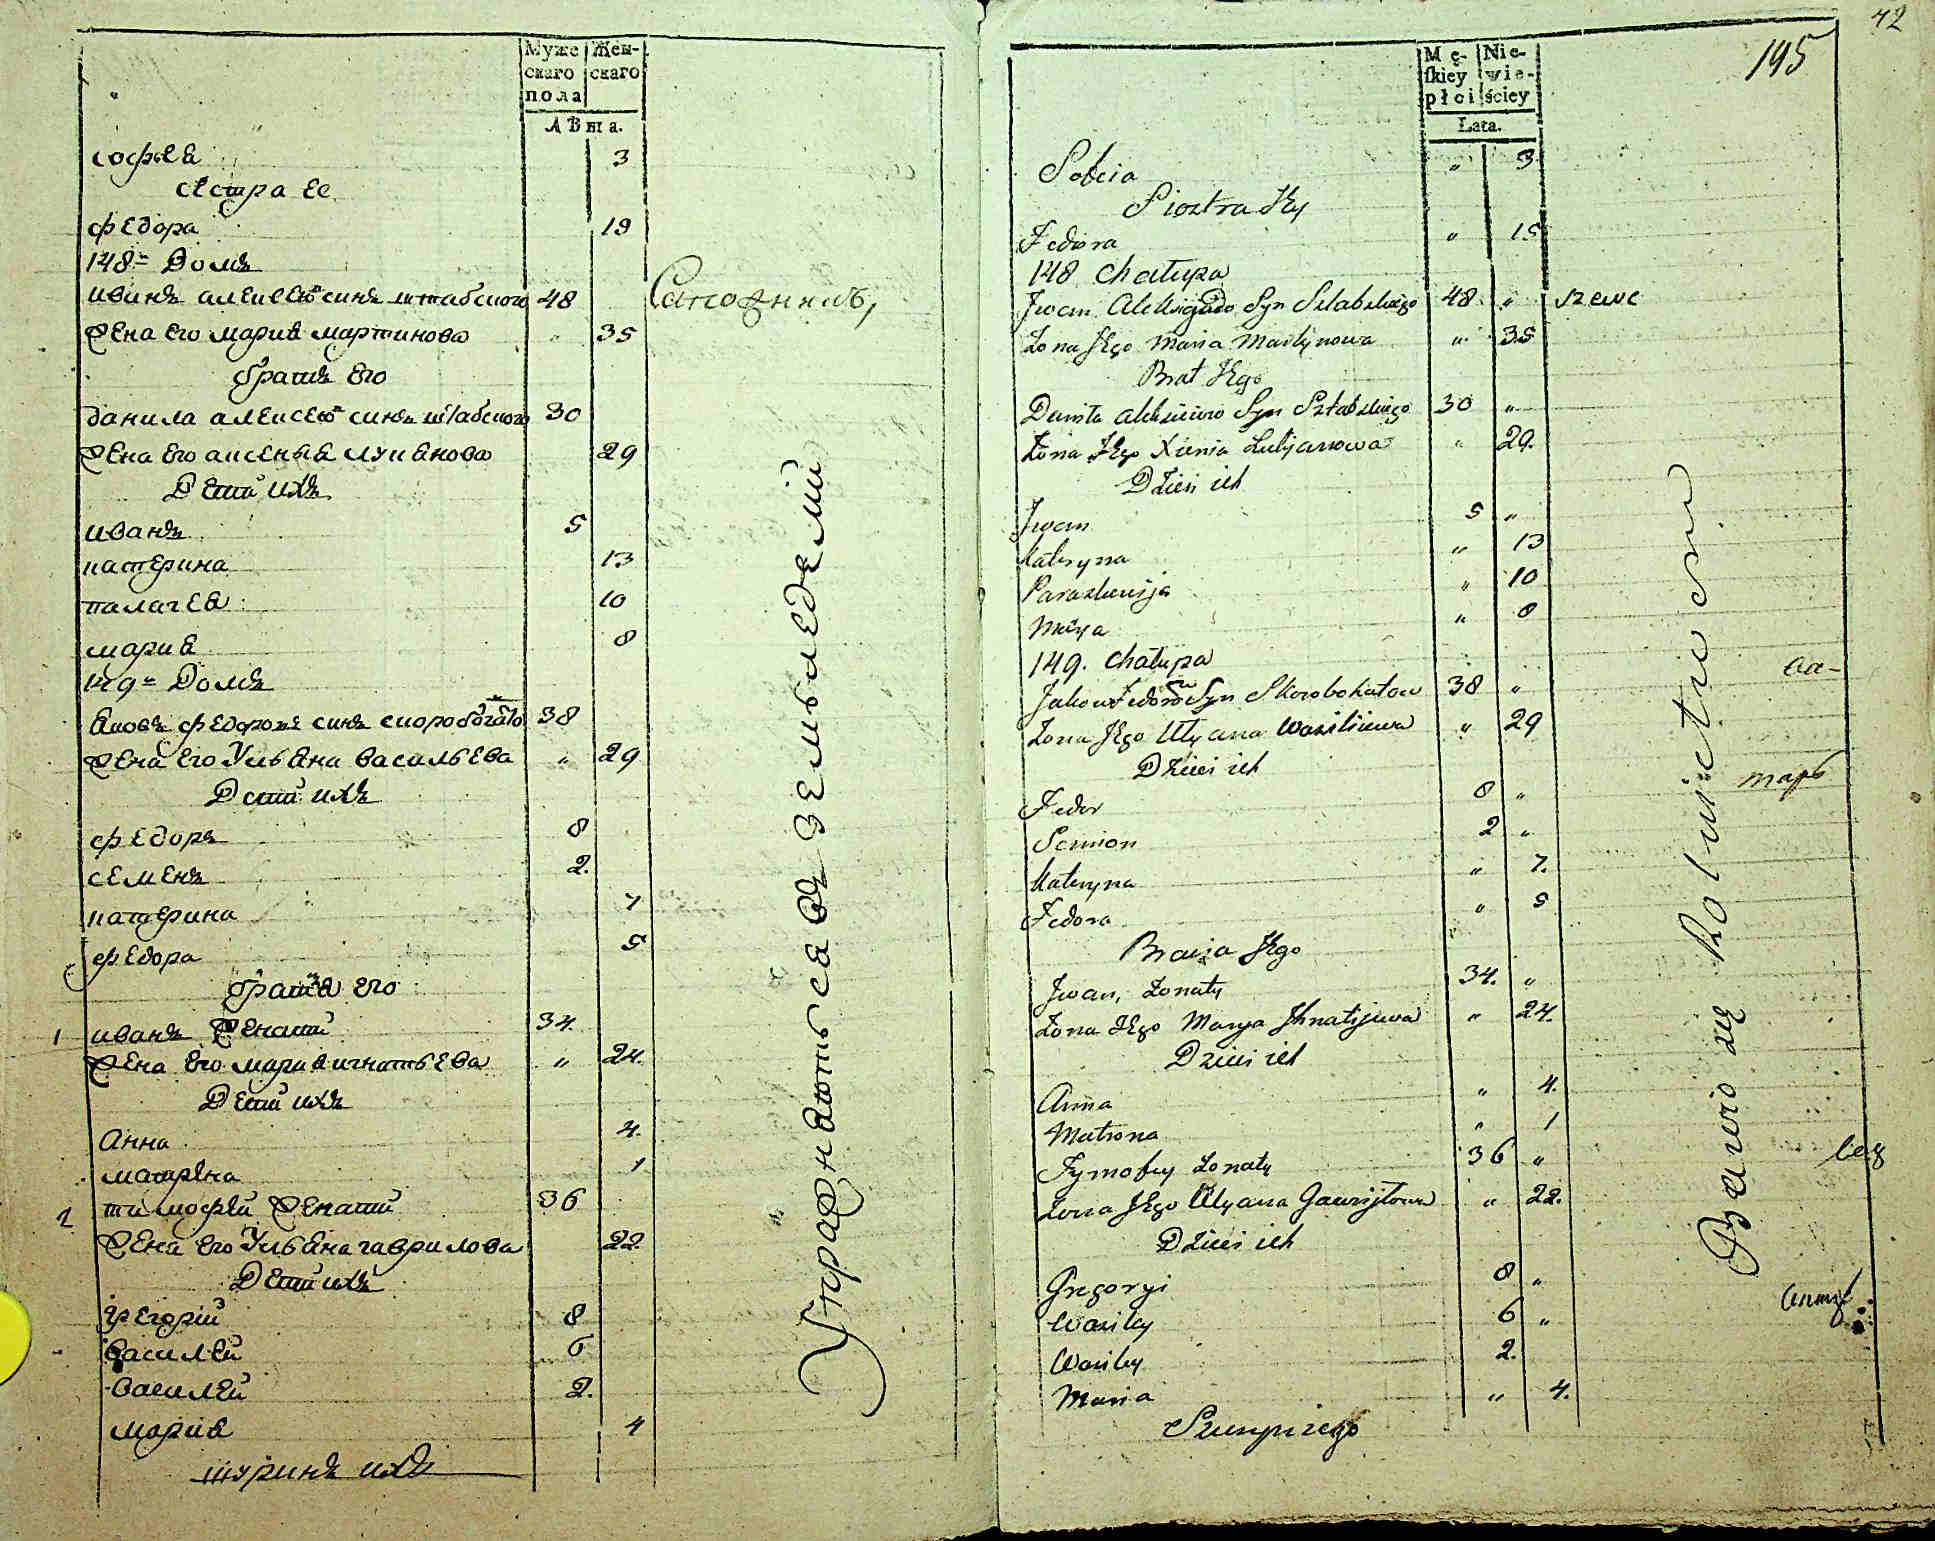 Муже Жен-
скаго скаго
пола
Лѣта.
софѣя 3
сестра ее
федора 19
148ъ Домъ
иванъ алексеевъ синъ штабского 48 Сапожникъ,
жена его мария мартинова " 35
братъ его
данила алексеевъ синъ штабского 30
жена его аксенья лукянова 29
Дети ихъ
иванъ 5
катерина 13
палагея 10
мария 8
149ъ Домъ
яковъ федоровъ синъ скоробогато 38
жена его Ульяна васильева " 29
Дети ихъ
федоръ 8
семенъ 2.
катерина 7
федора 5
братья его
1 иванъ Женатий 34
жена его мария игнатьева " 24.
Дети ихъ
Анна 4.
матрена 1
2 тимофей Женатий 36
жена его Ульяна гаврилова 22.
Дети ихъ
грегорий 8
василей 6
василей 2.
мария 4
шуринъ ихъ
Упражняютьса въ земьледелии
42
195
Mę- Nie-
skiey wie-
płci ściey
Lata.
Sofeia " 3
Siostra Jey
Fedora " 15
148 Chałupa
Jwan Aleksiejewo Syn Sztabskiego 48 " szewc
Żona Jego Maria Martynowa " 35
Brat Jego
Daniła Aleksiiewo Syn Sztabskiego 30 "
Żona Jego Xienia Lukjanowa " 29.
Dzieci ich
Jwan 5 "
Kateryna " 13
Paraskewija " 10
Marya " 8
149. Chałupa
Jakow Fedorow Syn Skorobohatow 38 "
Żona Jego Ulyana Wasiliiewa " 29
Dzieci ich
Fedor 8 "
Semion 2 "
Kateryna " 7.
Fedora " 5
Bracia Jego
Jwan, Żonaty 34. "
Żona Jego Marya Jhnatijewa " 24.
Dzieci ich
Anna " 4.
Matrona " 1
Tymofey Żonaty 36 "
Żona Jego Ulyana Gawryłowa " 22.
Dzieci ich
Gregoryi 8 "
Wasiley 6 "
Wasiley 2.
Maria " 4.
Szwagier ich
Bawio się Rolnictwem